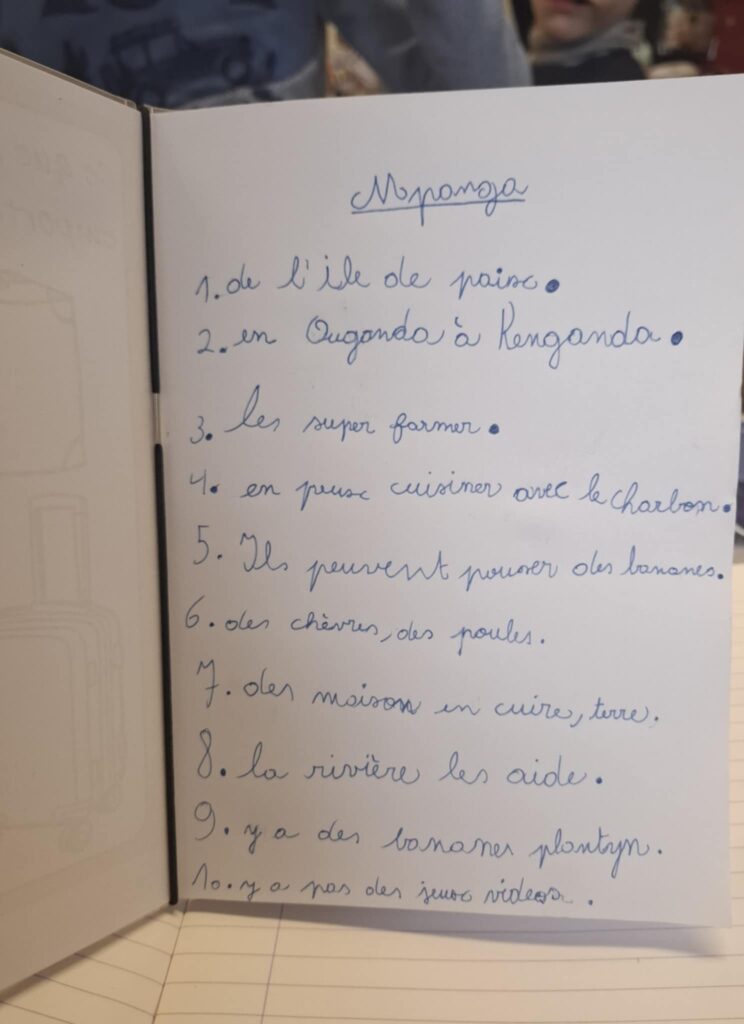 Mpanga
1. de l'ile de paix.
2. en Ouganda à Kenganda.
3. les super farmer.
4. en peux cuisiner avec le charbon.
5. Ils peuvent pousser des bananes.
6. des chèvres, des poules.
7. des maison en cuire, terre.
8. la rivière les aide.
9. y a des bananes plantyn.
10. y a pas des jeux videos.